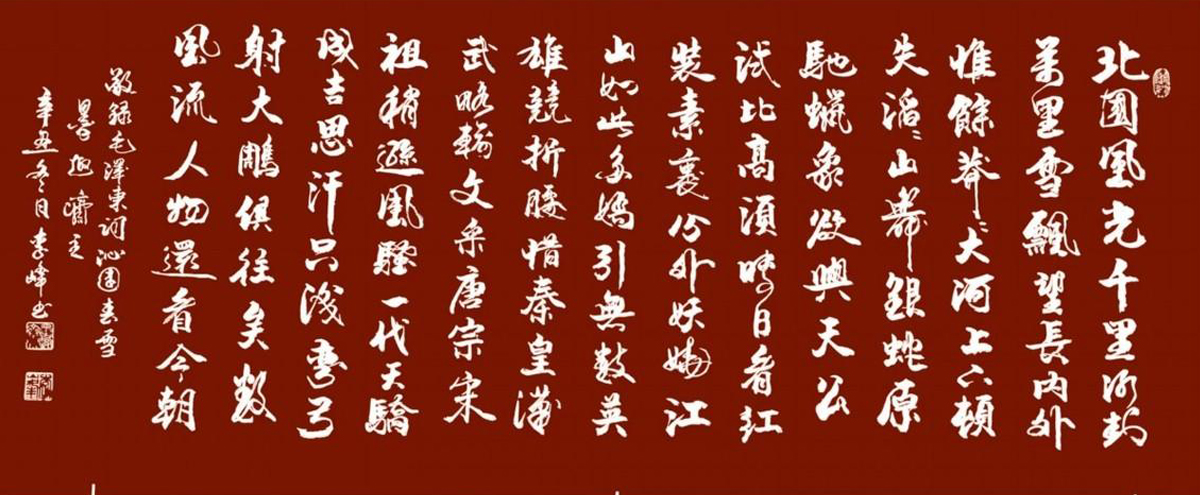 北國風光千里冰封
萬里雪飄望長內外
惟餘莽〻大河上下頓
失滔〻山舞銀蛇原
馳蠟象欲與天公
試比高須晴日看紅
裝素裹分外妖嬈江
山如此多嬌引無數英
雄競折腰惜秦皇漢
武略輸文采唐宗宋
祖稍遜風騷一代天驕
成吉思汗只淺彎弓
射大雕俱往矣數
風流人物還看今朝
敬錄毛澤東詞沁園春雪
墨趣齋主
辛丑冬月李峰书